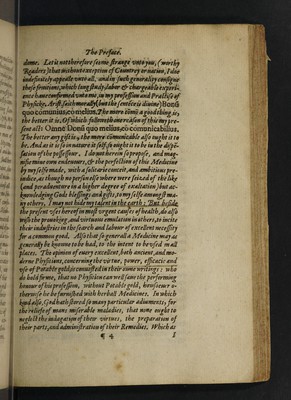 The Preface.
dome. Let it not therefore seeme strange vnto you, (worthy
Readers) that without exception of Countrey or nation, I doe
indefinitely appeale vnto all, and in such generality consigne
these fruitions, which long study, labor & chargeable experi-
ence haue confirmed vnto me, in my profession and Practise of
Physicke. Arist. saith morally (but the sentēce is diuine) Bonū
quo comunius, eo melius. The more cōmū a good thing is,
the better it is. Of which followeth one reasō of this my pre-
sent act: Omne Donū quo melius, eò communicabilius.
The better any gift is, the more cōmunicable also ought it to
be. And as it is so in nature it self, so ought it to be in the dispē-
sation of the possessour. I do not herein so propose, and mag-
nifie mine own endeuours, & the perfectiōn of this Medicine
by my selfe made, with a satirike conceit, and ambitious pre-
iudice, as though no person else where were seised of the like
(and peraduenture in a higher degree of exaltation) but ac-
knowledging Gods blessings and gifts, to my selfe amongst ma-
ny others, I may not hide my talent in the earth: But beside
the present vses hereof in most vrgent causes of health, do also
wish the prouoking, and vertuous emulation in others, to vnite
their industries in the search and labour of excellent necessity
for a common good. Also that so generall a Medicine may as
generally be knowne to be had, to the intent to be vsed in all
places. The opinion of euery excellent, both ancient, and mo-
derne Physitians, concerning the vertue, power, efficacie and
vse of Potable gold is cōmitted in their owne writings: who
do hold firme, that no Physician can well saue the performing
honour of his profession, without Potable gold, howsoeuer o-
therwise he be furnished with herball Medicines. In which
kind also, God hath stored so many particular adiuments, for
the reliefe of mans miserable maladies, that none ought to
neglect the indagation of their vertues, the preparation of
their parts, and administration of their Remedies. Which as
¶ 4 I